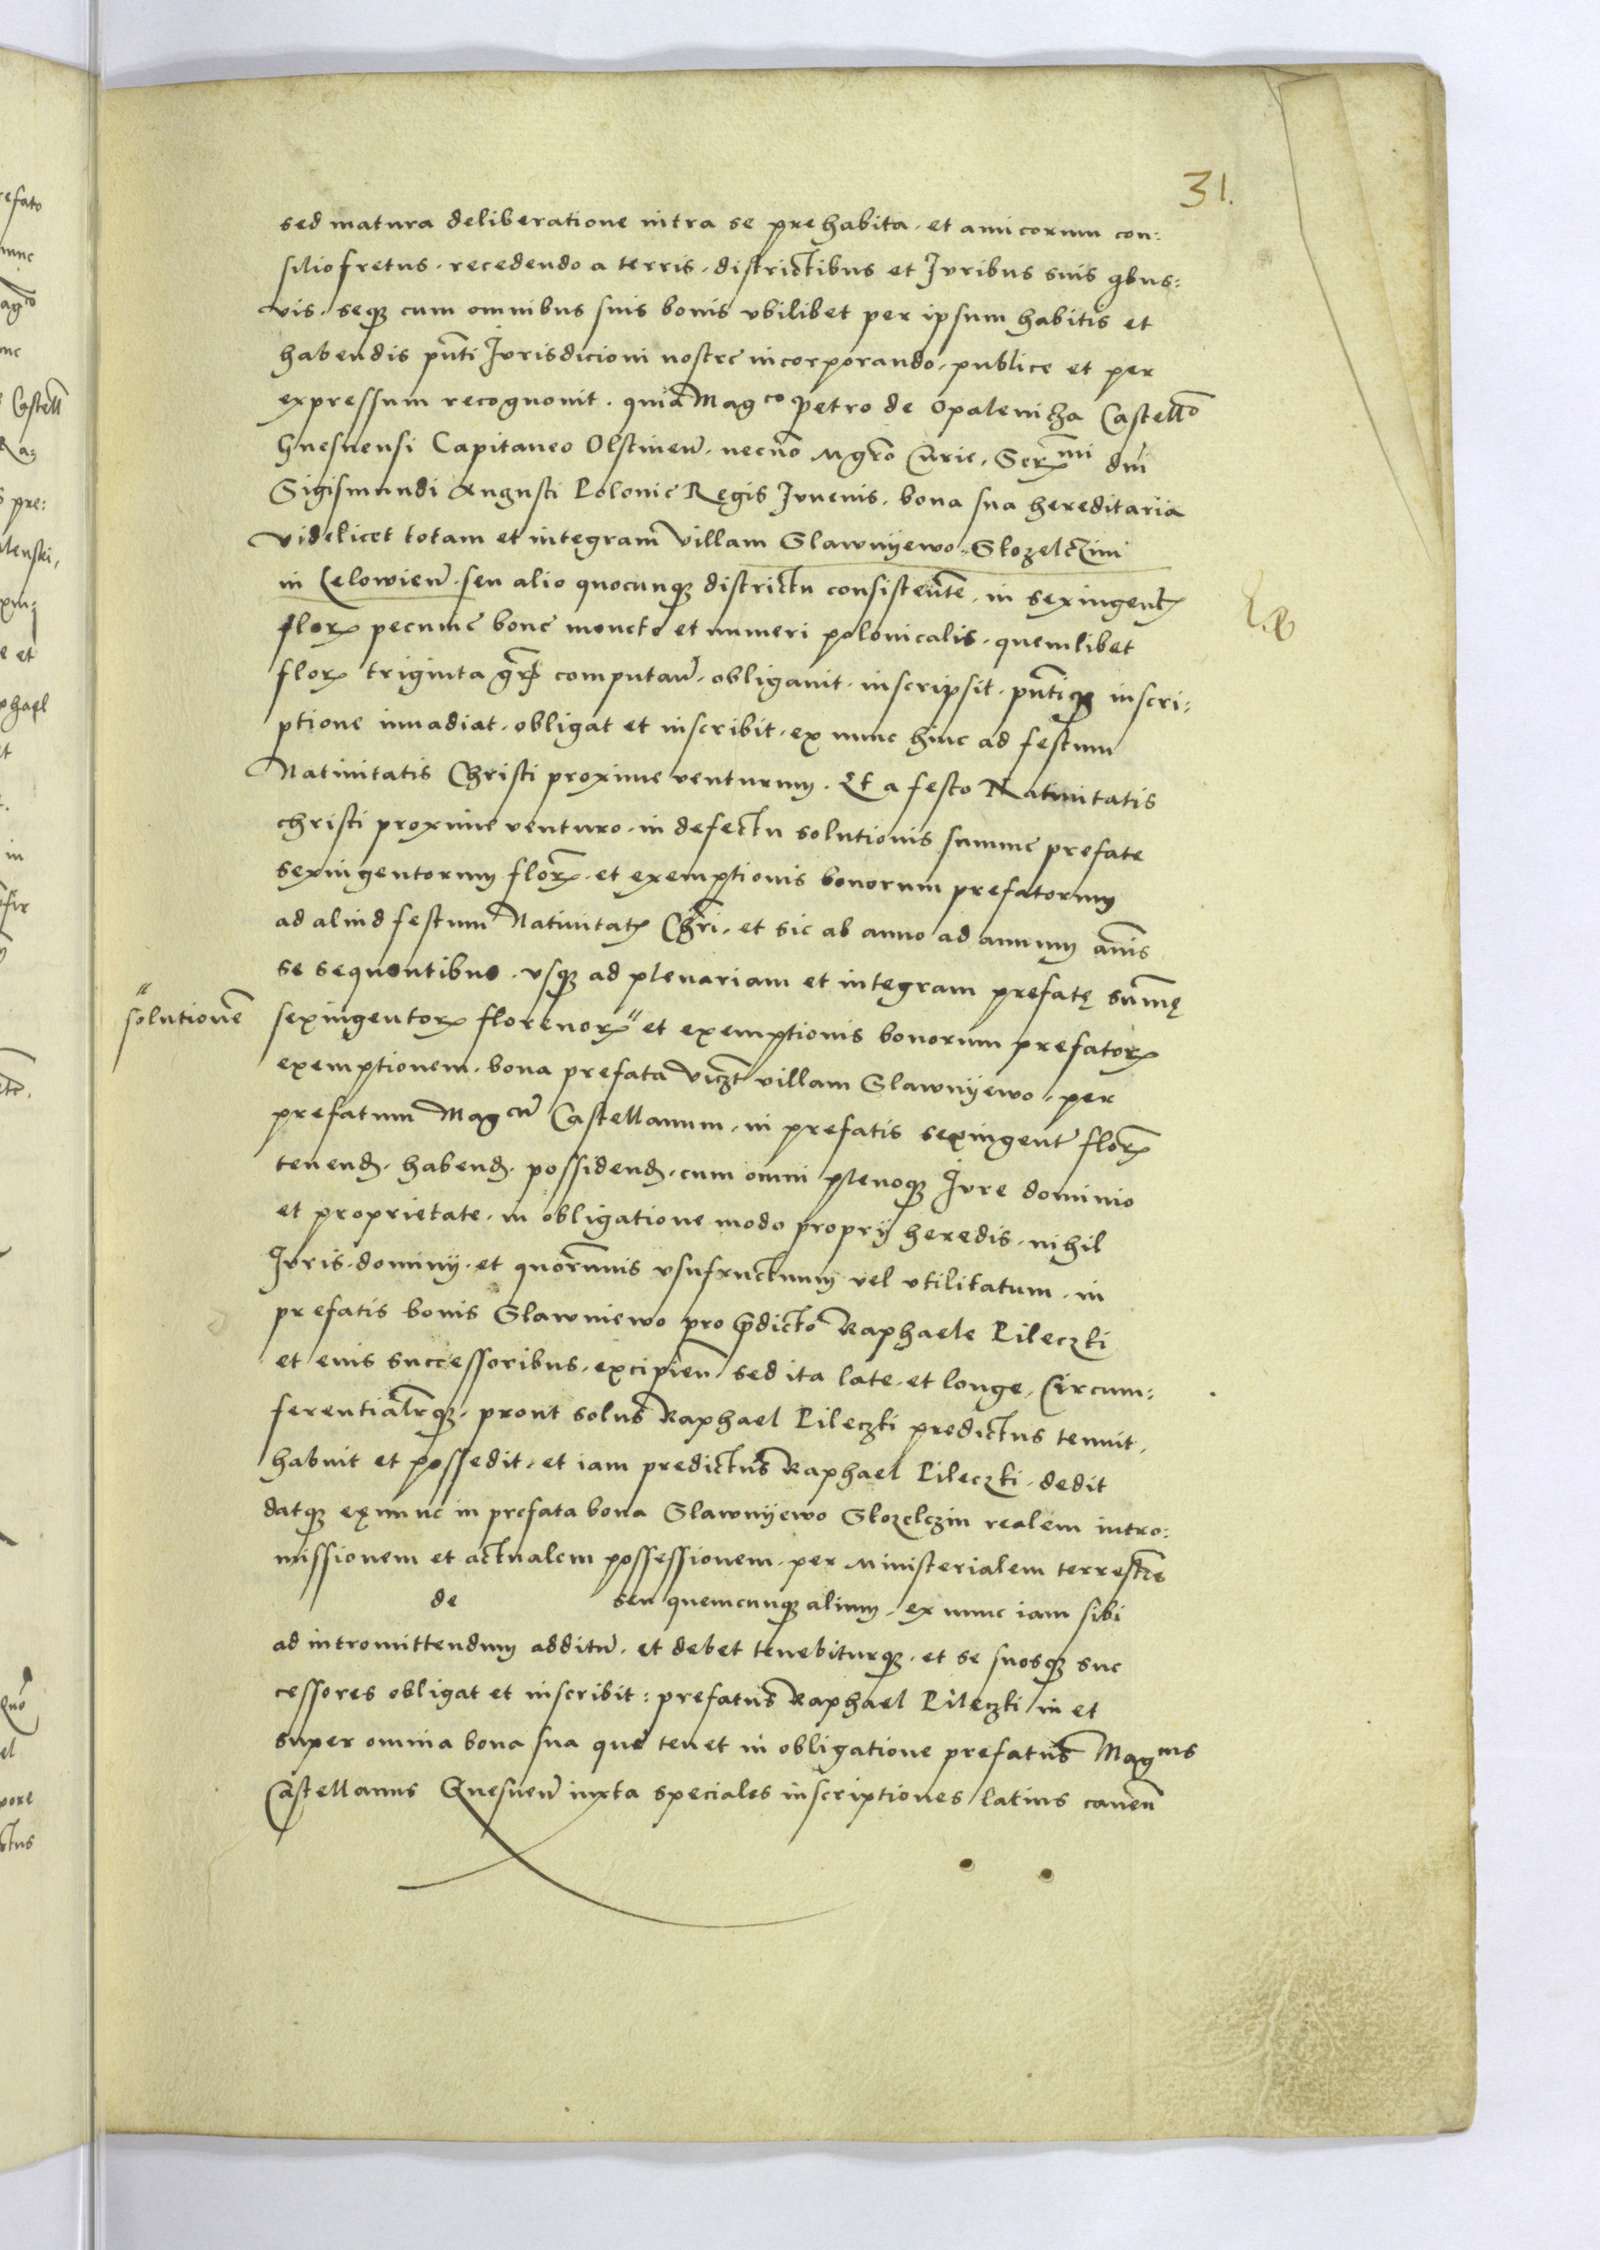 31.
sed matura deliberatione intra se prehabita. et amicorum con:
silio fretus. recedendo a terris. districtibus et Iuribus suis qbus:
vis. seq3 cum omnibus suis bonis vbilibet per ipsum habitis et
habendis pnti Iurisdicioni nostre incorporando. publice et per
expressum recognovit. quia Magco Petro de Opalenicza Castello
Gnesnensi Capitaneo Olstinen. necno Mgro Curie. Serxmi dni
Sigismundi Augusti Polonie Regis Iuvenis. bona sua hereditaria
videlicet totam et integram villam Slawnyewo. Slozelczini
in Lelowien. seu alio quocunq3 districtu consistente. in sexingent
flor pecunie bone monete et numeri polonicalis. quemlibet
flor triginta gr computan. obligavit. inscripsit. pntiq3 inscri:
ptione invadiat. obligat et inscribit. ex nunc hinc ad festum
Nativitatis Christi proxime venturum. Et a festo Nativitatis
christi proxime venturo. in defectu solutionis summe prefate
sexingentorum flor. et exemptionis bonorum prefatorum
ad aliud festum Nativitat Chri. et sic ab anno ad annum annis
se sequentibus. vsq3 ad plenariam et integram prefatę summę
"solutione
sexingentor florenor" et exemptionis bonorum prefator
exemptionem. bona prefata viczt villam Slawnyewo. per
prefatum Magcu Castellanum. in prefatis sexingent flor
tenend. habend. possidend. cum omni plenoq3 Iure dominio
et proprietate. in obligatione modo proprij heredis. nihil
Iuris. dominij. et quorumvis vsufructuum vel vtilitatum. in
prefatis bonis Slawniewo pro pdicto Raphaele Pileczki
et eius successoribus. excipien. sed ita late. et longe. Circum:
ferentialrq3. prout solus Raphael Pileczki predictus tenuit.
habuit et possedit. et iam predictus Raphael Pileczki. dedit
datq3 ex nunc in prefata bona Slawnyewo Slozelczin realem intro:
missionem et actualem possessionem. per Ministerialem terrestre
de seu quemcunq3 alium. ex nunc iam sibi
ad intromittendum additu. et debet tenebiturq3. et se suosq3 suc
cessores obligat et inscribit: prefatus Raphael Pileczki in et
super omnia bona sua que tenet in obligatione prefatus Magcus
Castellanus Gnesnen iuxta speciales inscriptiones latius canen